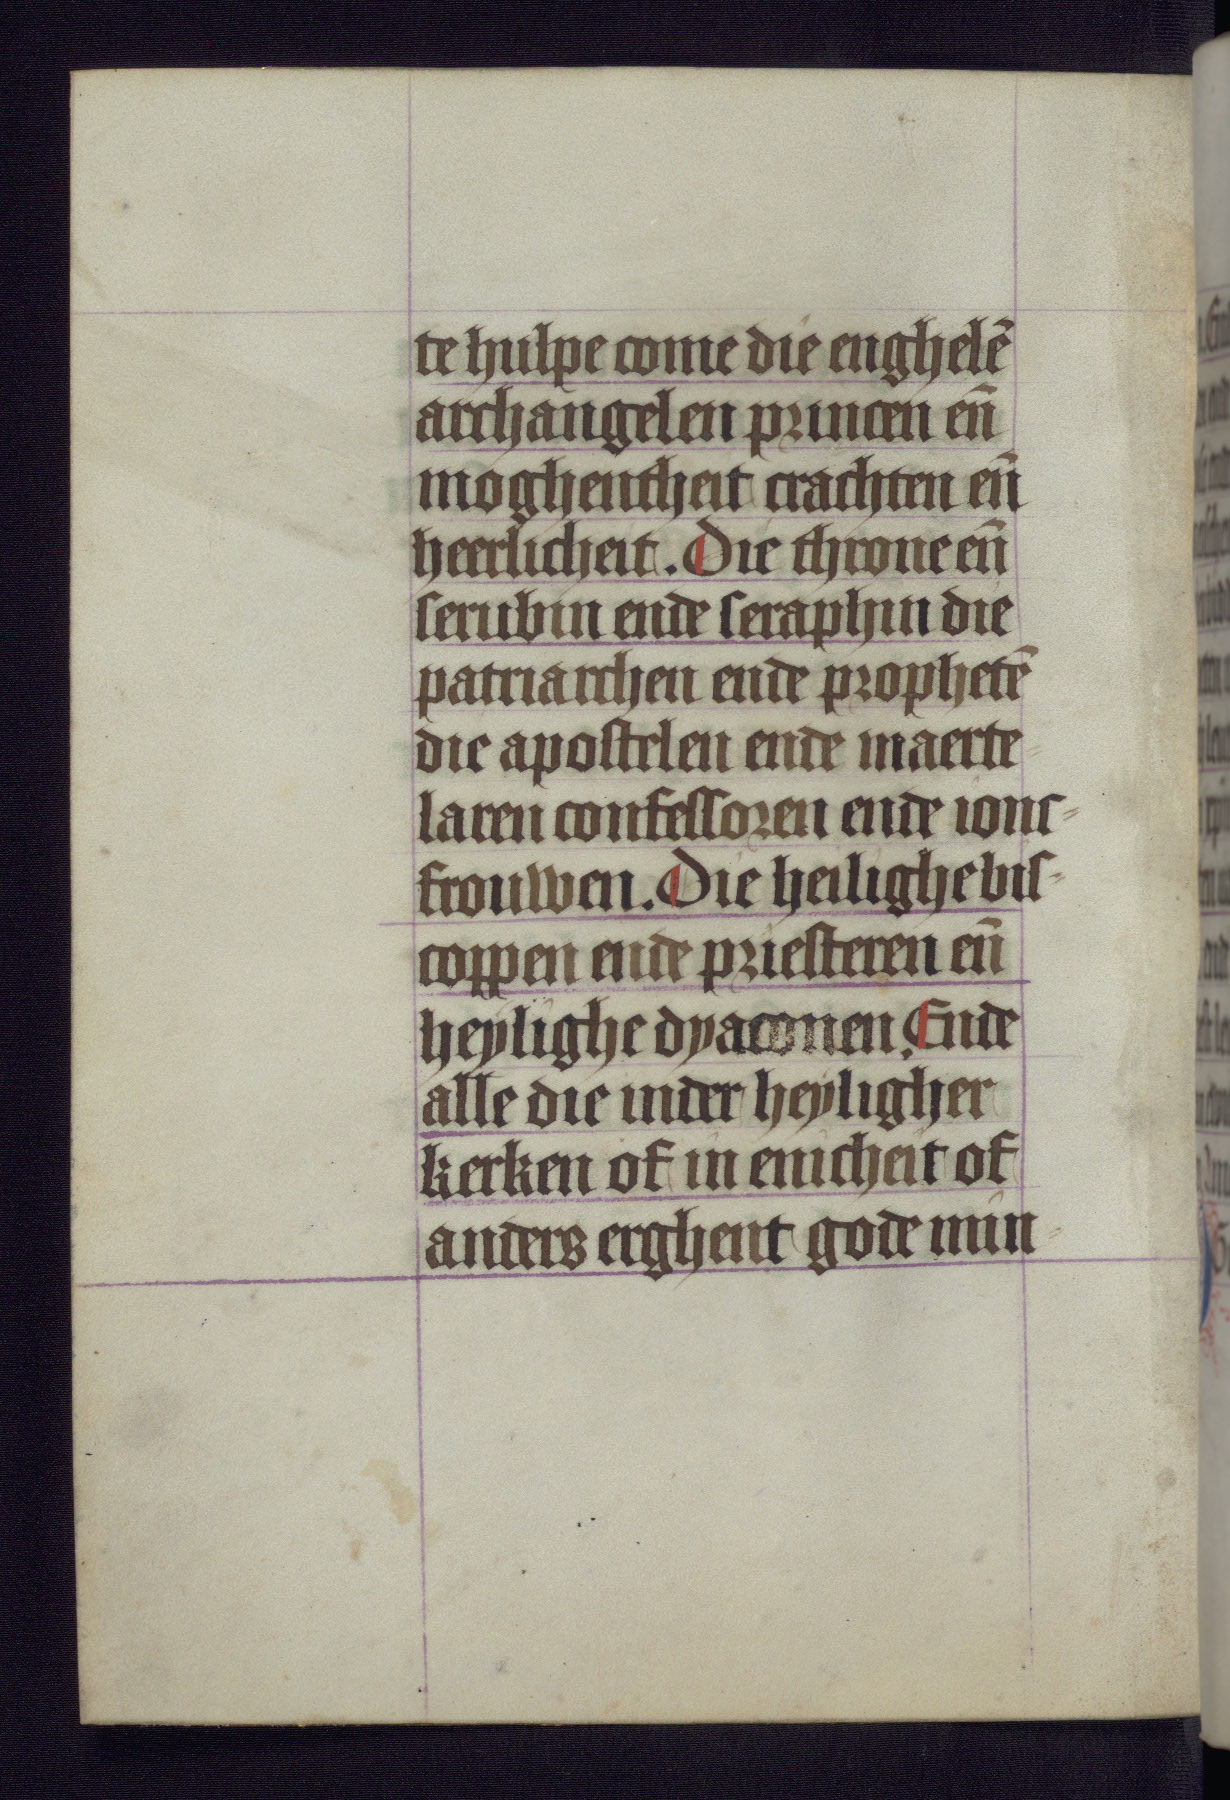 te hulpe come die enghelē
archangelen princen en̄
moghentheit crachten en̄
heerlicheit. Die throne en̄
serubin ende seraphin die
patriarchen ende prophetē
die apostelen ende maerte-
laren confessoren ende ionc-
frouwen. Die heilighe bis-
coppen ende priesteren en̄
heylighe dyaconen. Ende
alle die inder heyligher
kerken of in enicheit of
anders erghent gode min-